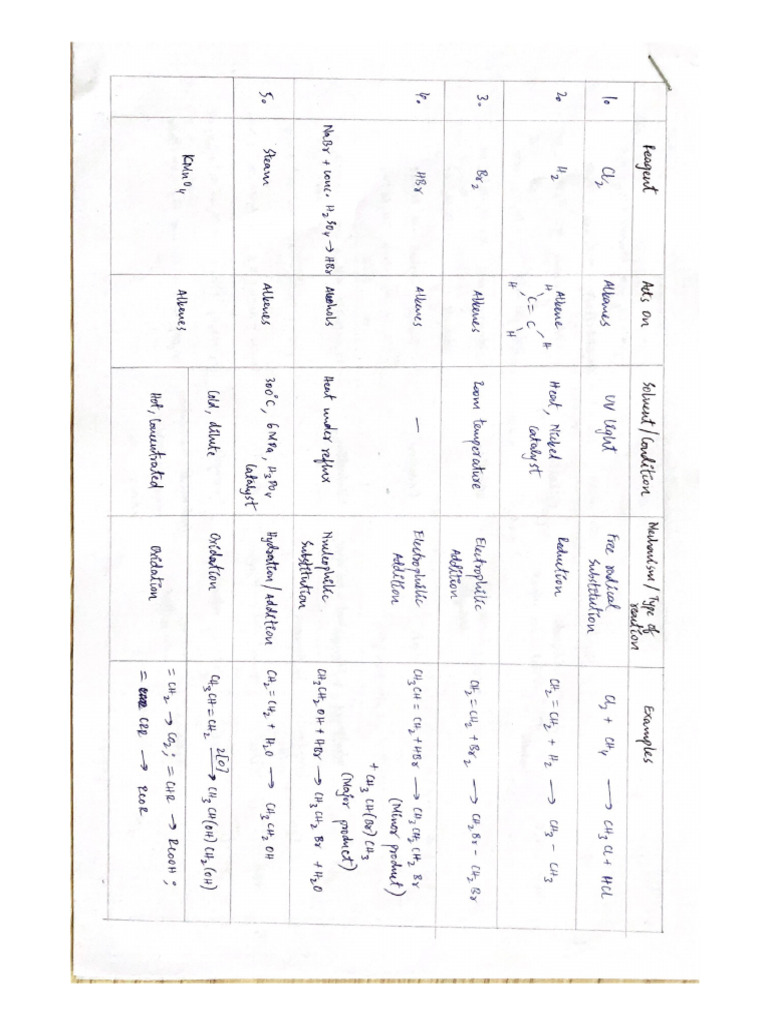 Reagent
Acts on
Solvent/Condition
Mechanism/Type of
reaction
Examples
1.
Cl2
Alkanes
UV light
Free radical
Substitution
Cl2 + CH4 → CH3Cl + HCl
2.
H2
Alkene
H H
C = C
H H
Heat, Nickel
catalyst
Reduction
CH2 = CH2 + H2 → CH3 - CH3
3.
Br2
Alkenes
Room temperature
Electrophilic
Addition
CH2 = CH2 + Br2 → CH2Br - CH2Br
4.
HBr
Alkenes
—
Electrophilic
Addition
CH3CH = CH2 + HBr → CH3CH2CH2 Br
(Minor product)
+ CH3 CH(Br) CH3
(Major product)
NaBr + conc. H2SO4 → HBr
Alcohols
Heat under reflux
Nucleophilic
Substitution
CH3CH2OH + HBr → CH3CH2 Br + H2O
5.
Steam
Alkenes
300°C, 6 MPa, H3PO4
catalyst
Hydration/Addition
CH2 = CH2 + H2O → CH3CH2OH
KMnO4
Alkenes
Cold, dilute
Oxidation
CH3CH = CH2 2[O] → CH3CH(OH)CH2(OH)
Hot, Concentrated
Oxidation
= CH2 → CO2 ; = CHR → RCOOH ;
= CRR → RCOR